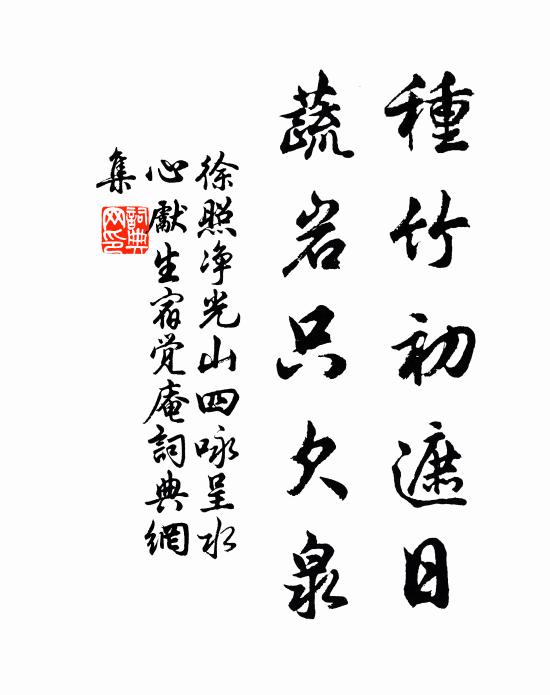 種竹初遮日
蔬岩只欠泉
徐照净光山四咏呈水
心獻生宿觉庵詞典網
集
詞典
网印